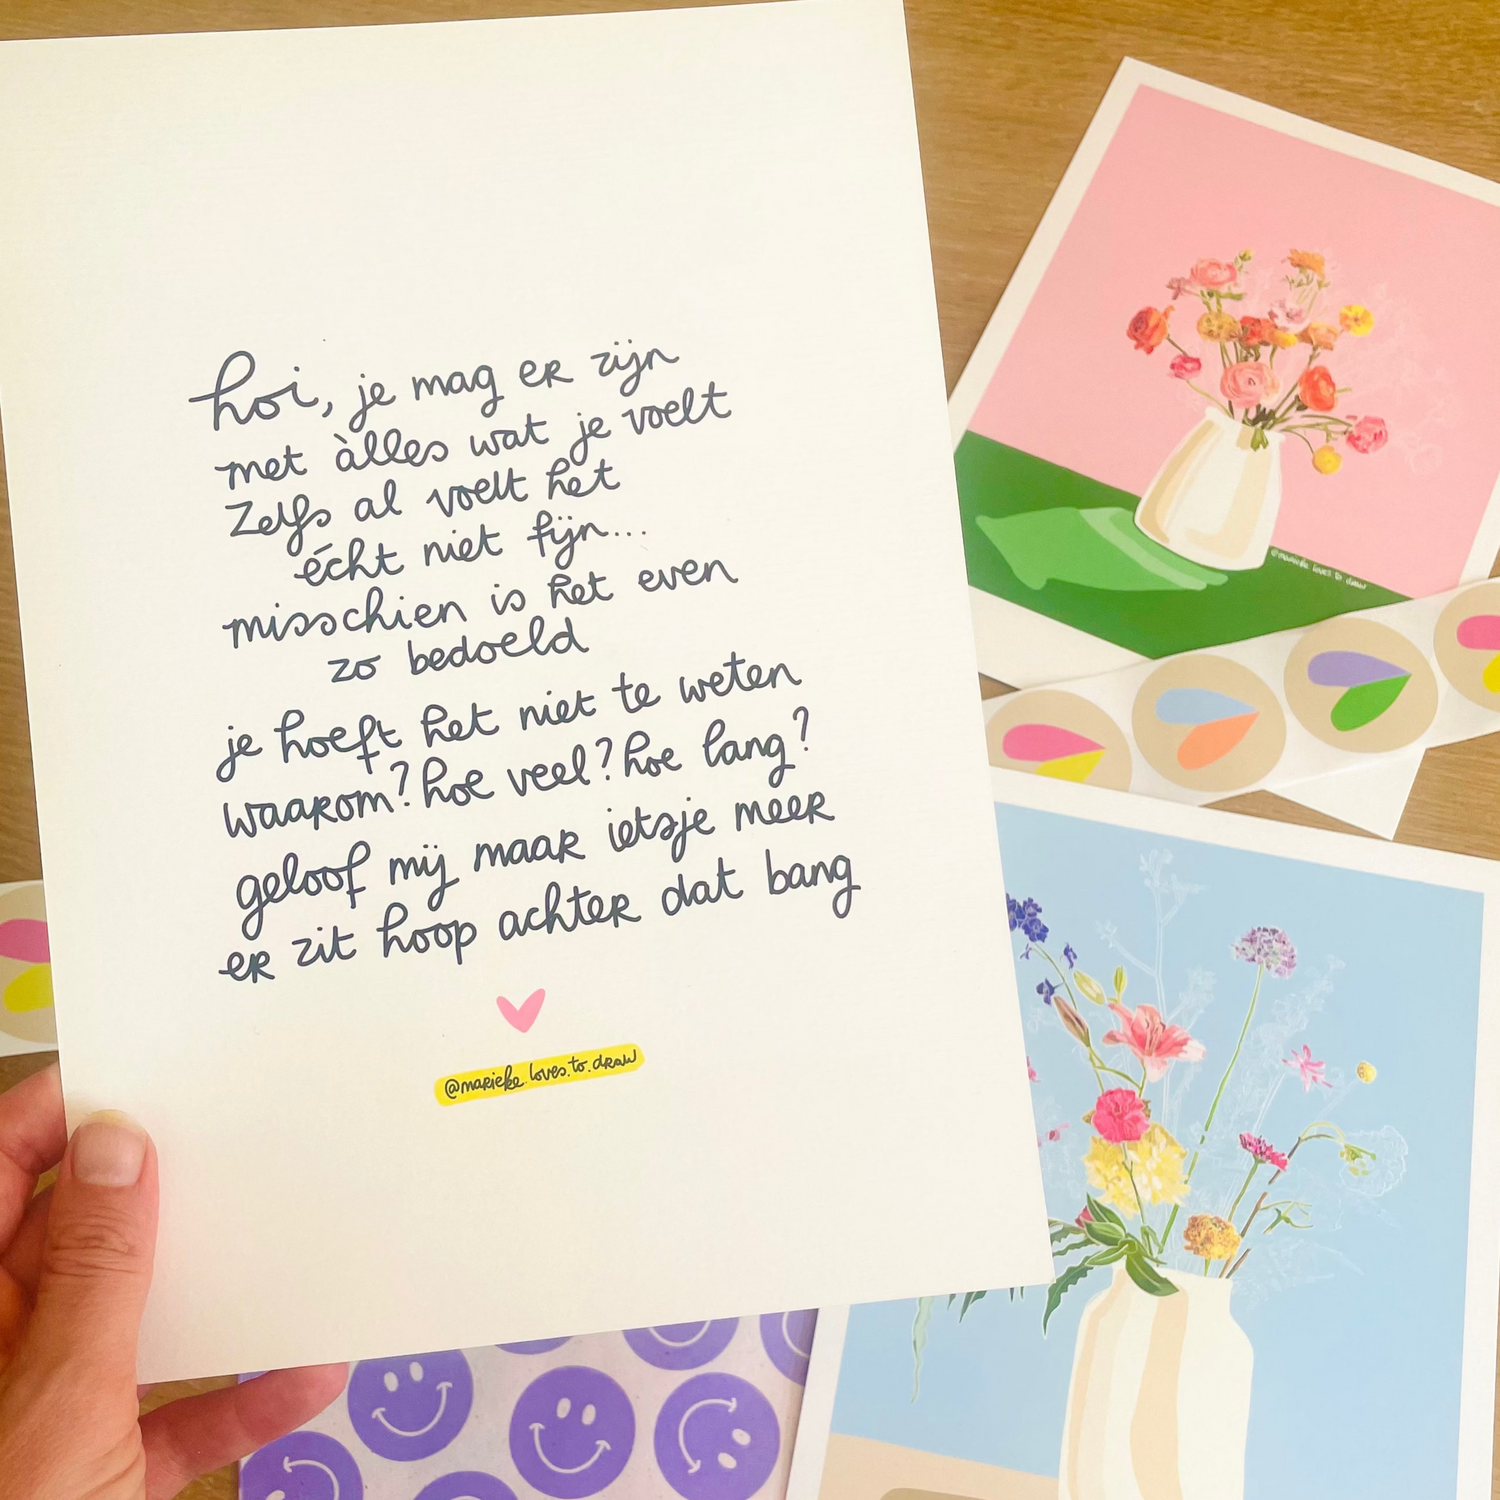 hoi, je mag er zijn
met àlles wat je voelt
Zelfs al voelt het
écht niet fijn...
misschien is het even
zo bedoeld
je hoeft het niet te weten
waarom? hoe veel? hoe lang?
geloof mij maar ietsje meer
er zit hoop achter dat bang
@marieke.loves.to.draw
@marieke loves to draw